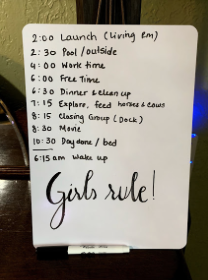 2:00 Launch (Living em)
2:30 Pool/outside
4:00 Work time
6:00 Free Time
6:30 Dinner & clean up
7:15 Explore, feed horses & cows
8:15 Closing Group (Dock)
8:30 Movie
10:30 Day done / bed
6:15am Wake up
Girls rule!